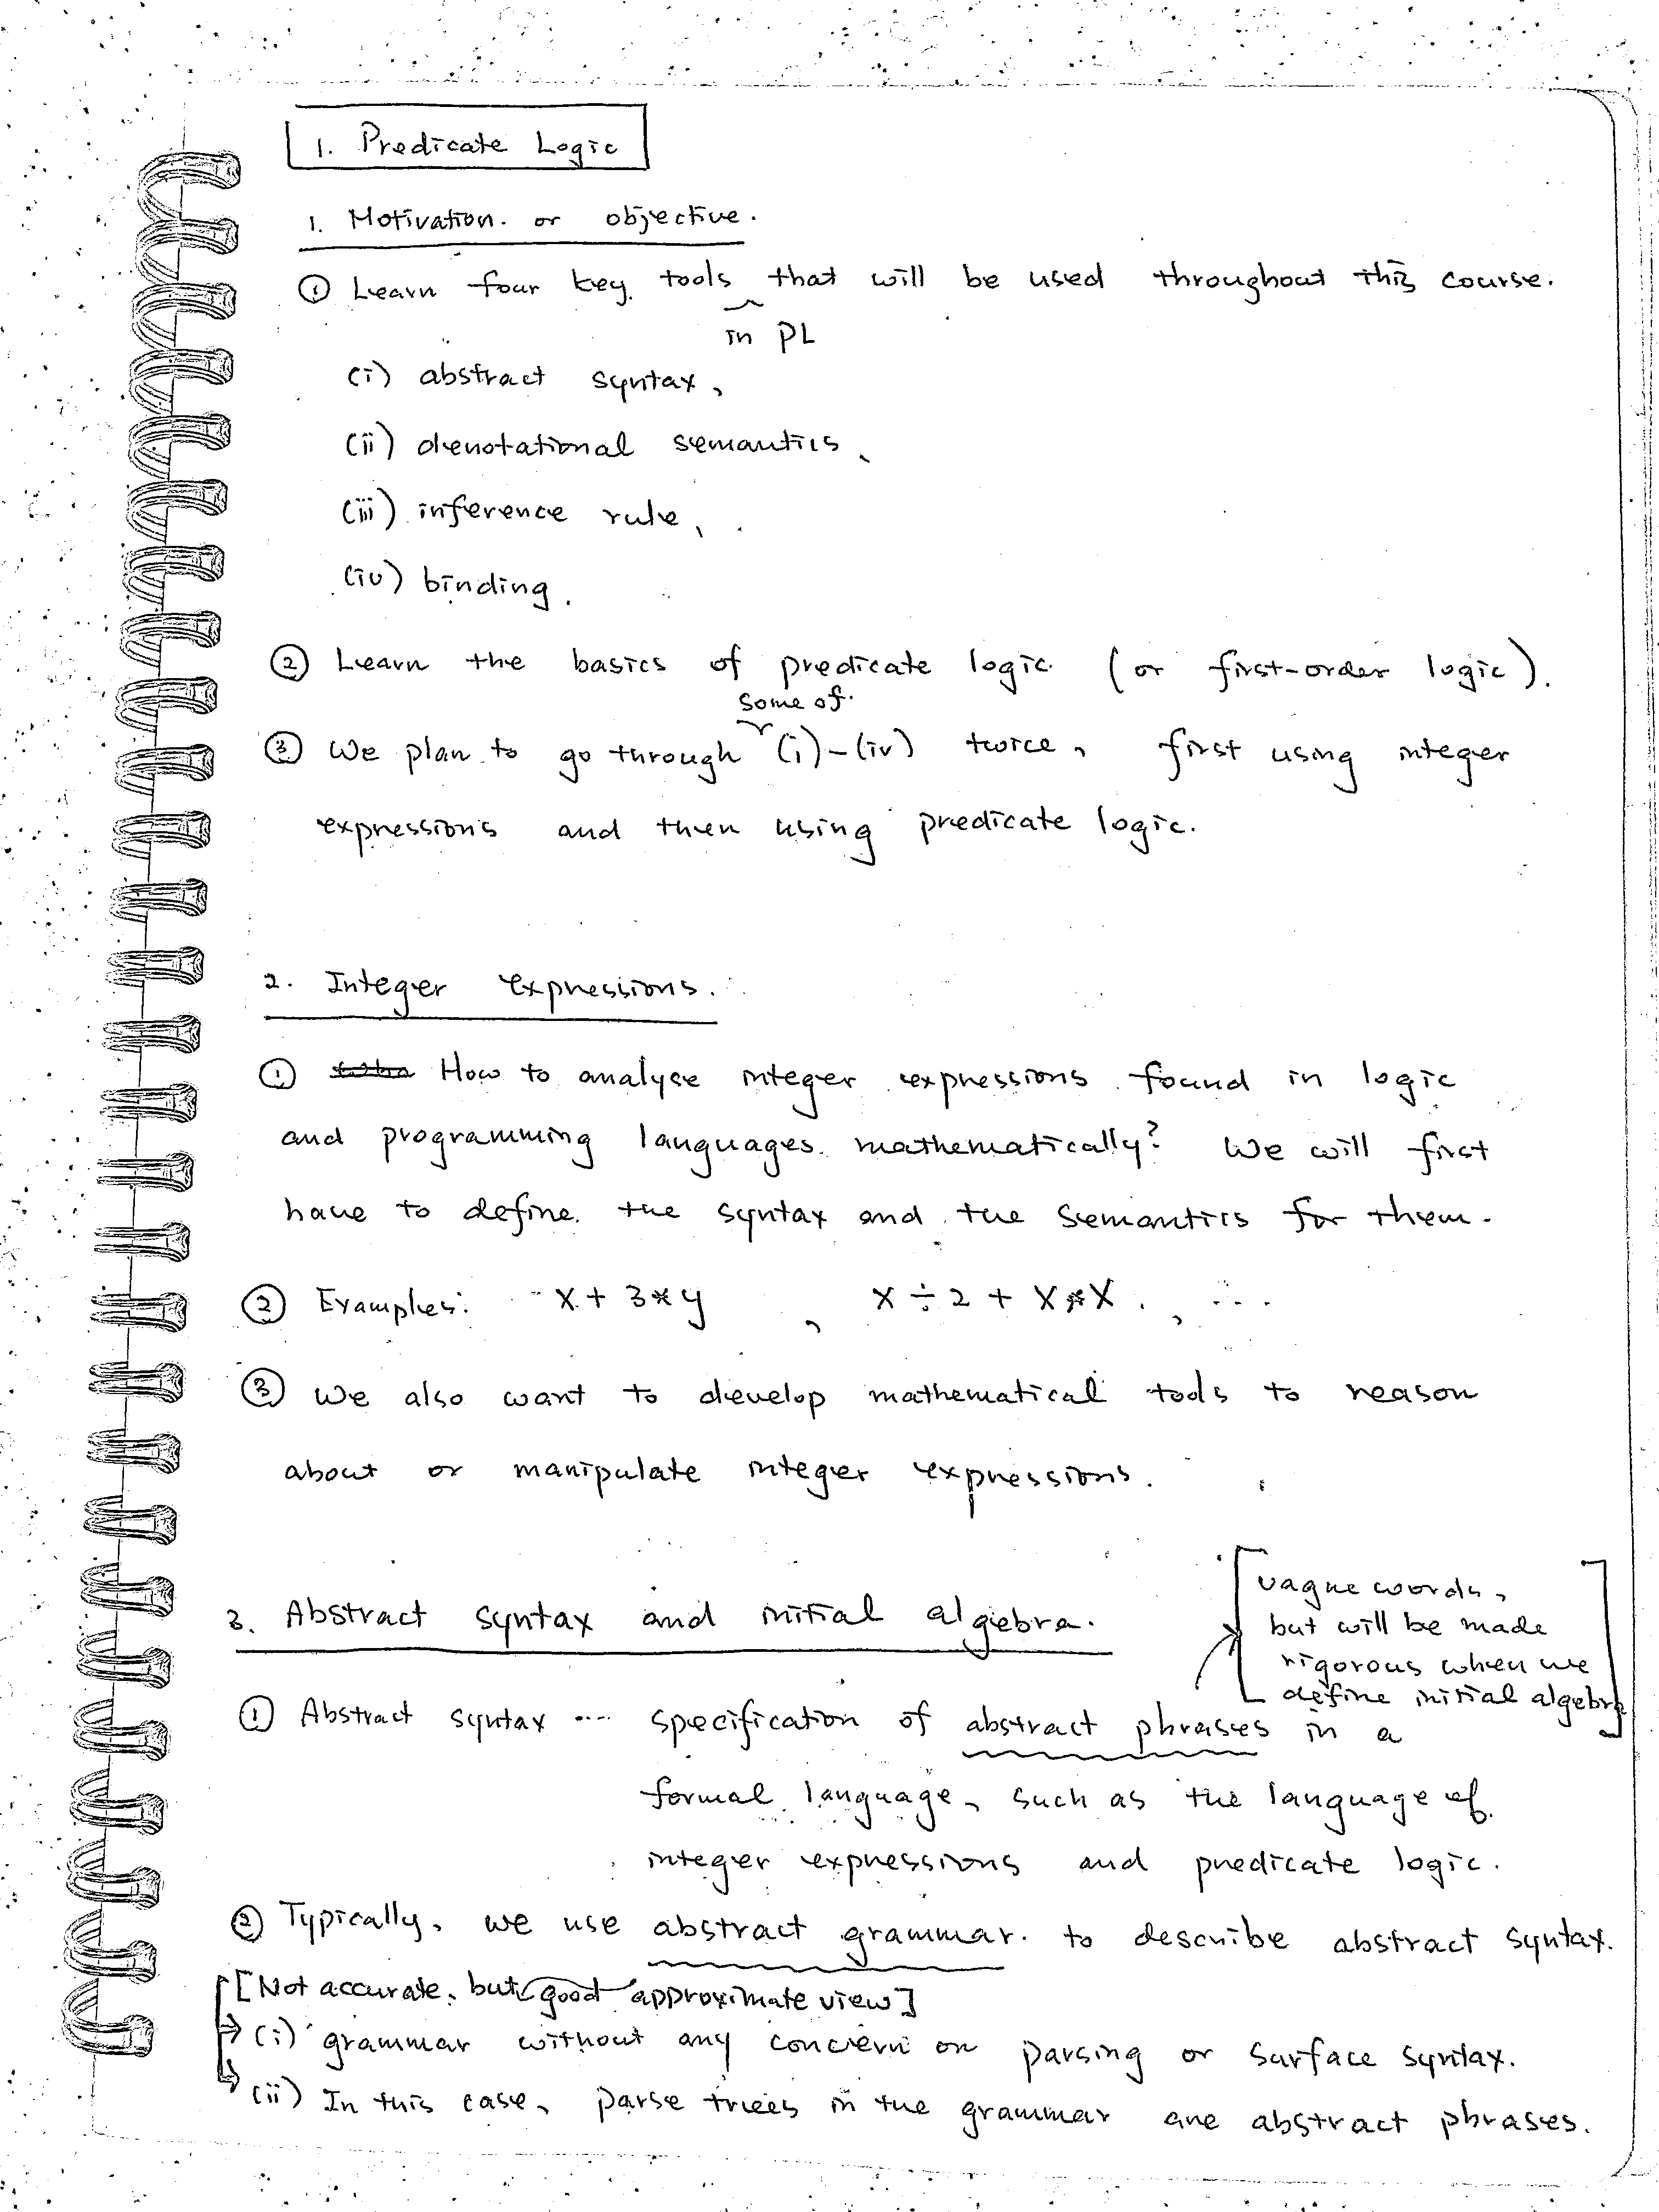 1. Predicate Logic
1. Motivation. or objective.
① Learn four key tools that will be used throughout this course.
in PL
(i) abstract syntax,
(ii) denotational semantics,
(iii) inference rule,
(iv) binding.
② Learn the basics of predicate logic (or first-order logic).
some of
③ We plan to go through (i)-(iv) twice, first using integer
expressions and then using predicate logic.
2. Integer expressions.
① How to analyse integer expressions found in logic
and programming languages mathematically? We will first
have to define the syntax and the semantics for them.
② Examples: x + 3*y , x ÷ 2 + x*x , ...
③ We also want to develop mathematical tools to reason
about or manipulate integer expressions.
vague words,
but will be made
rigorous when we
define initial algebra
3. Abstract syntax and initial algebra.
① Abstract syntax ... specification of abstract phrases in a
formal language, such as the language of
integer expressions and predicate logic.
② Typically, we use abstract grammar to describe abstract syntax.
[Not accurate, but good approximate view]
(i) grammar without any concern on parsing or surface syntax.
(ii) In this case, parse trees in the grammar are abstract phrases.